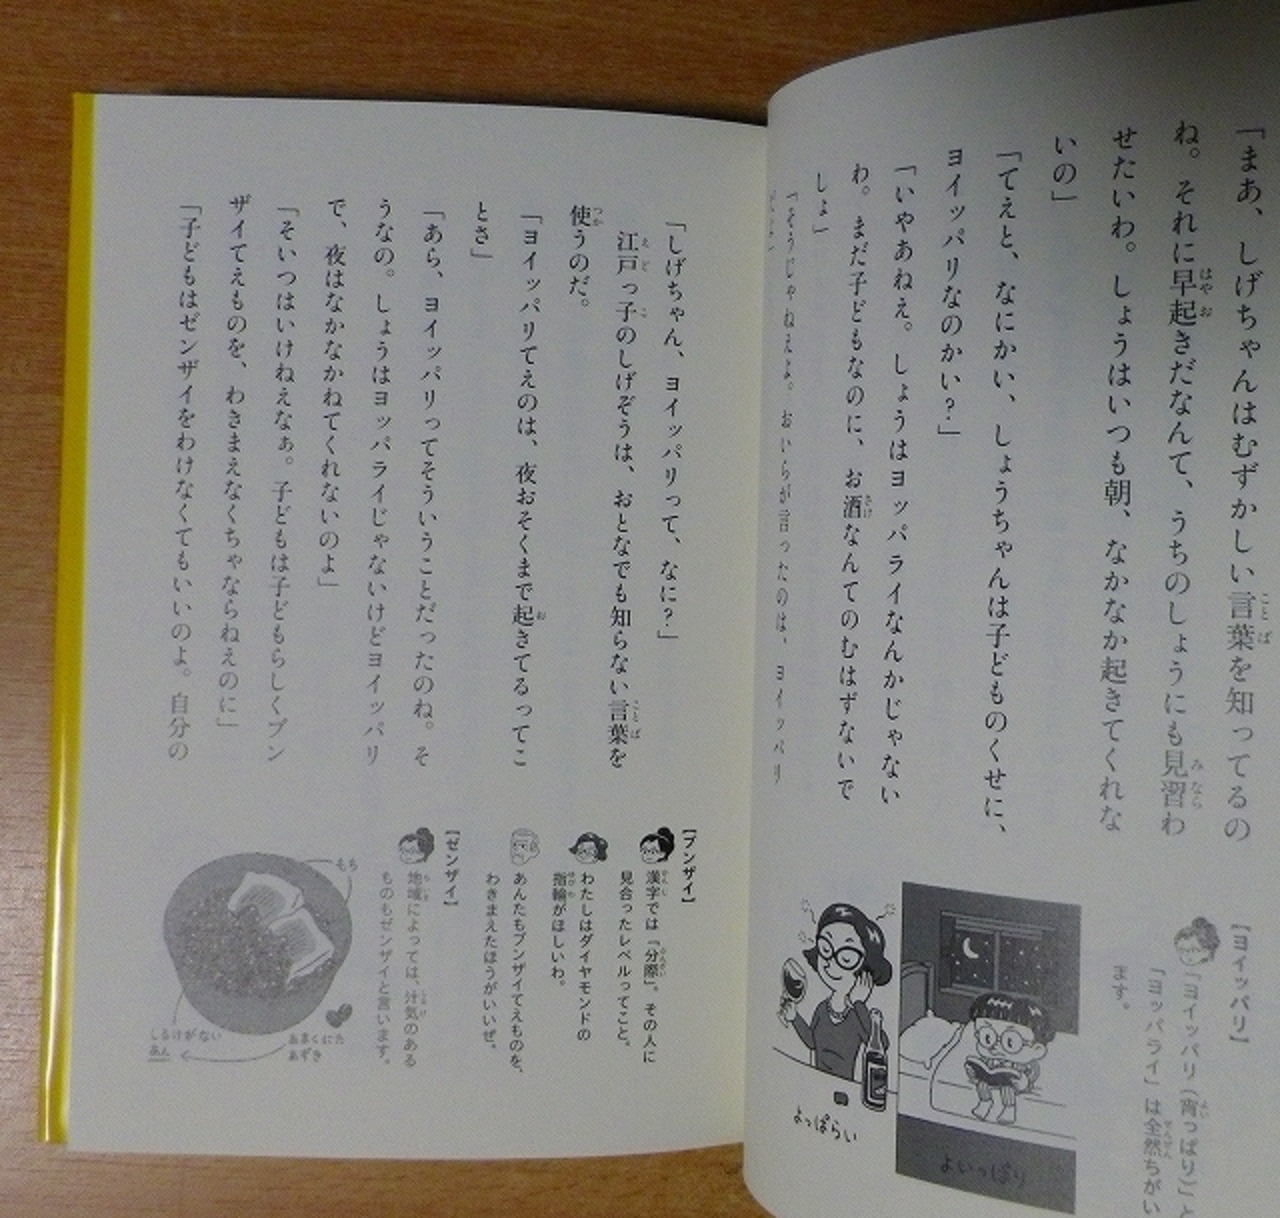 「まあ、しげちゃんはむずかしい言葉を知ってるの
ね。それに早起きだなんて、うちのしょうにも見習わ
せたいわ。しょうはいつも朝、なかなか起きてくれな
いの」
「てえと、なにかい、しょうちゃんは子どものくせに、
ヨイッパリなのかい?」
「いやあねえ。しょうはヨッパライなんかじゃない
わ。まだ子どもなのに、お酒なんてのむはずないで
しょ」
「そうじゃねえよ。おいらが言ったのは、ヨイッパリ
【ヨイッパリ】
「ヨイッパリ(宵っぱり)」と
「ヨッパライ」は全然ちがい
ます。
よいっぱり
よっぱらい
「しげちゃん、ヨイッパリって、なに?」
江戸っ子のしげぞうは、おとなでも知らない言葉を
使うのだ。
「ヨイッパリてえのは、夜おそくまで起きてるってこ
とさ」
「あら、ヨイッパリってそういうことだったのね。そ
うなの。しょうはヨッパライじゃないけどヨイッパリ
で、夜はなかなかねてくれないのよ」
「そいつはいけねえなぁ。子どもは子どもらしくブン
ザイてえものを、わきまえなくちゃならねえのに」
「子どもはゼンザイをわけなくてもいいのよ。自分の
【ブンザイ】
漢字では「分際」。その人に
見合ったレベルってこと。
わたしはダイヤモンドの
指輪がほしいわ。
あんたもブンザイてえものを、
わきまえたほうがいいぜ。
【ゼンザイ】
地域によっては、汁気のある
ものもゼンザイと言います。
もち
あまくにた
あずき
しるけがない
あん